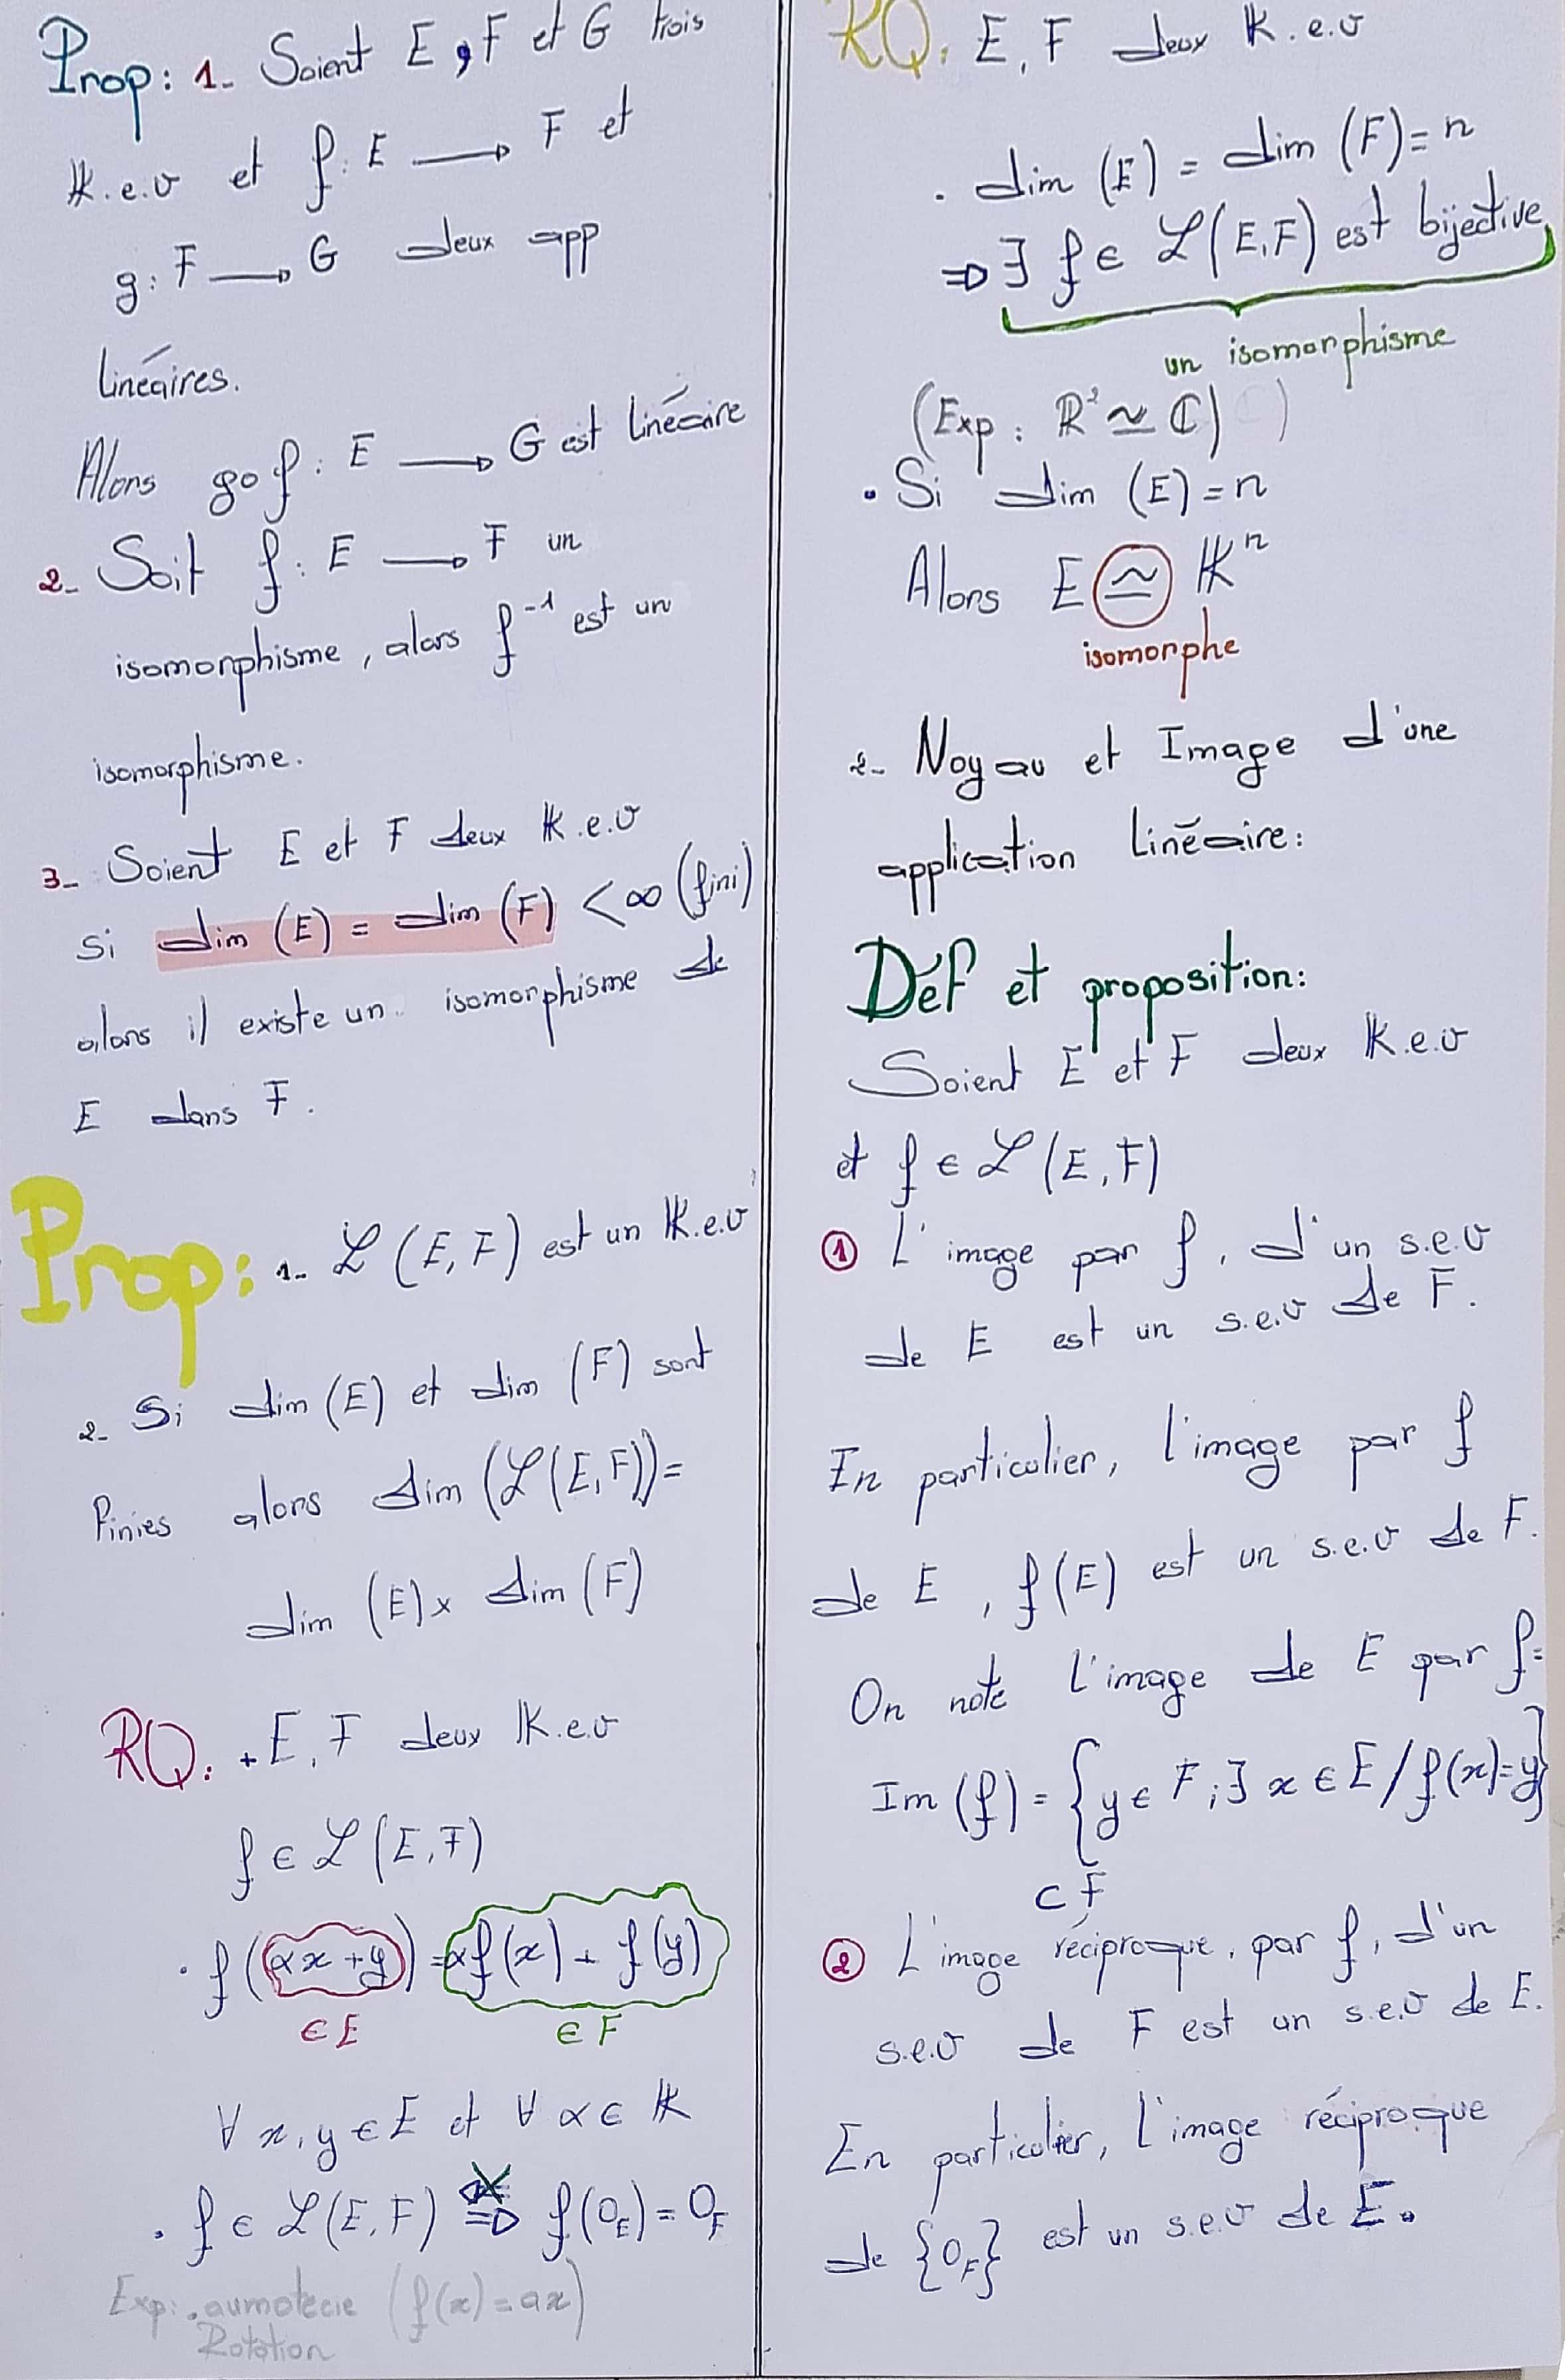 Prop: 1- Soient E, F et G trois
K.e.v et f: E → F et
g: F → G deux app
linéaires.
Alors gof: E → G est linéaire
2- Soit f: E → F un
isomorphisme, alors f⁻¹ est un
isomorphisme.
3- Soient E et F deux K.e.v
Si dim (E) = dim (F) < ∞ (fini)
alors il existe un isomorphisme de
E dans F.
Prop: 1- ℒ(E,F) est un K.e.v
2- Si dim (E) et dim (F) sont
finies alors dim (ℒ(E,F)) =
dim (E) x dim (F)
RQ: + E, F deux K.e.v
f ∈ ℒ(E,F)
• f(αx+y) = αf(x) + f(y)
∈ E ∈ F
∀ x, y ∈ E et ∀ α ∈ K
⇍
• f ∈ ℒ(E,F) ⇒ f(0_E) = 0_F
Exp: . aumotecie (f(x) = ax)
Rotation
RQ: E, F deux K.e.v
• dim (E) = dim (F) = n
⇒ ∃ f ∈ ℒ(E,F) est bijective
un isomorphisme
(Exp: ℝ² ≃ ℂ)
• Si dim (E) = n
Alors E ≃ Kⁿ
isomorphe
2- Noyau et Image d'une
application linéaire:
Déf et proposition:
Soient E et F deux K.e.v
et f ∈ ℒ(E,F)
① L'image par f, d'un s.e.v
de E est un s.e.v de F.
En particulier, l'image par f
de E, f(E) est un s.e.v de F.
On note l'image de E par f:
Im (f) = {y ∈ F; ∃ x ∈ E / f(x) = y}
⊂ F
② L'image réciproque, par f, d'un
s.e.v de F est un s.e.v de E.
En particulier, l'image réciproque
de {0_F} est un s.e.v de E.